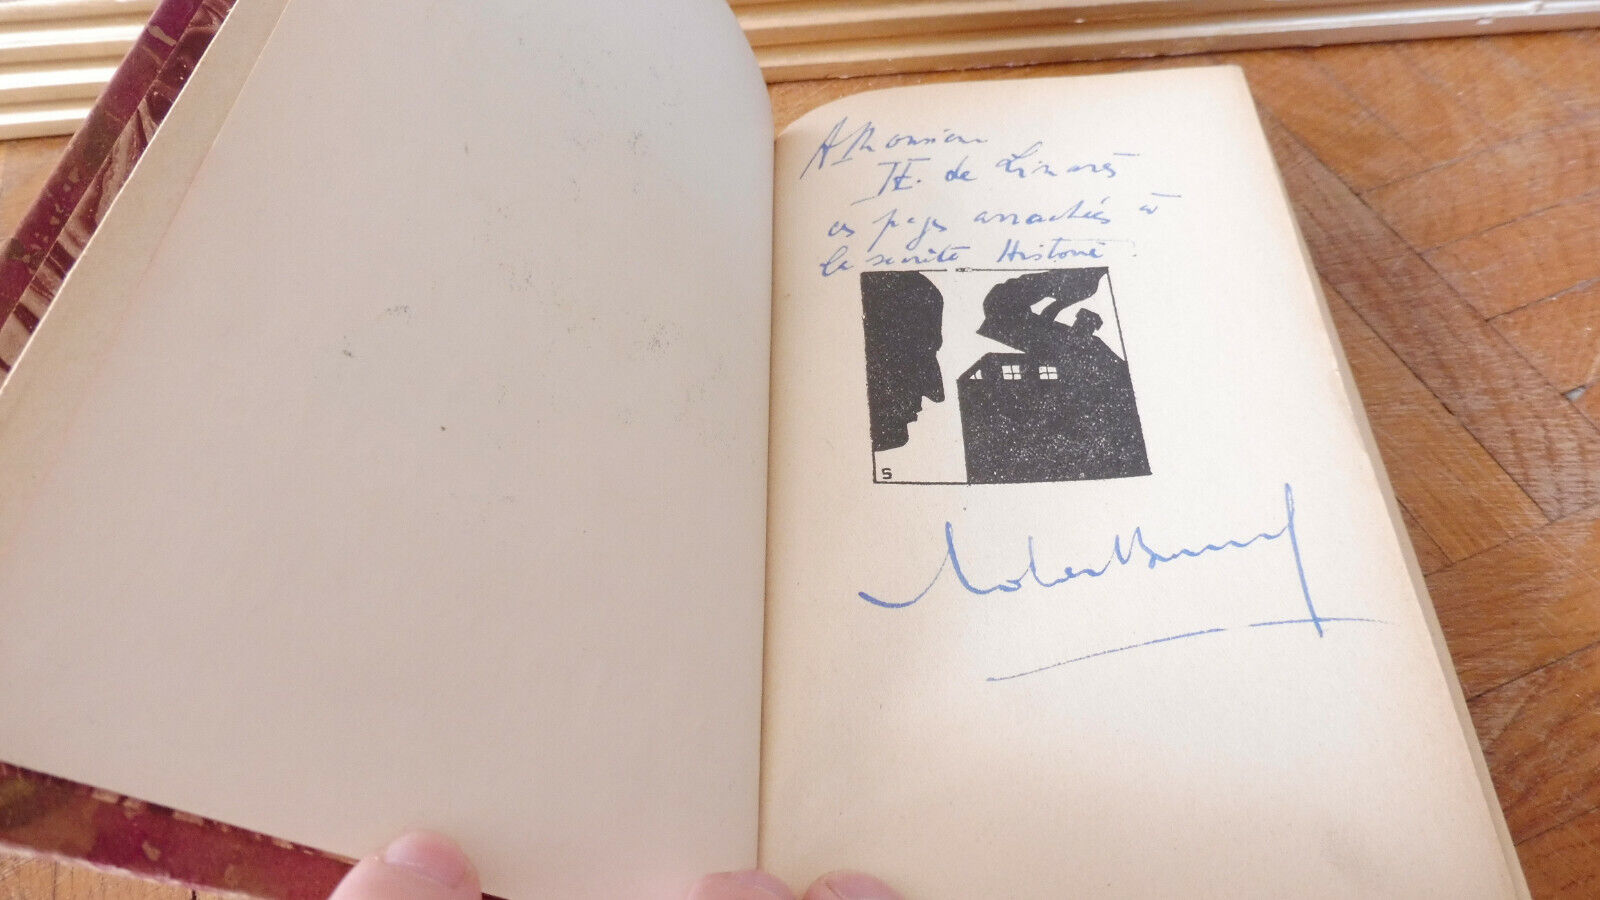 A Monsieur
de Linarès
ces pages arrachées à
la secrète Histoire.
S
Robert